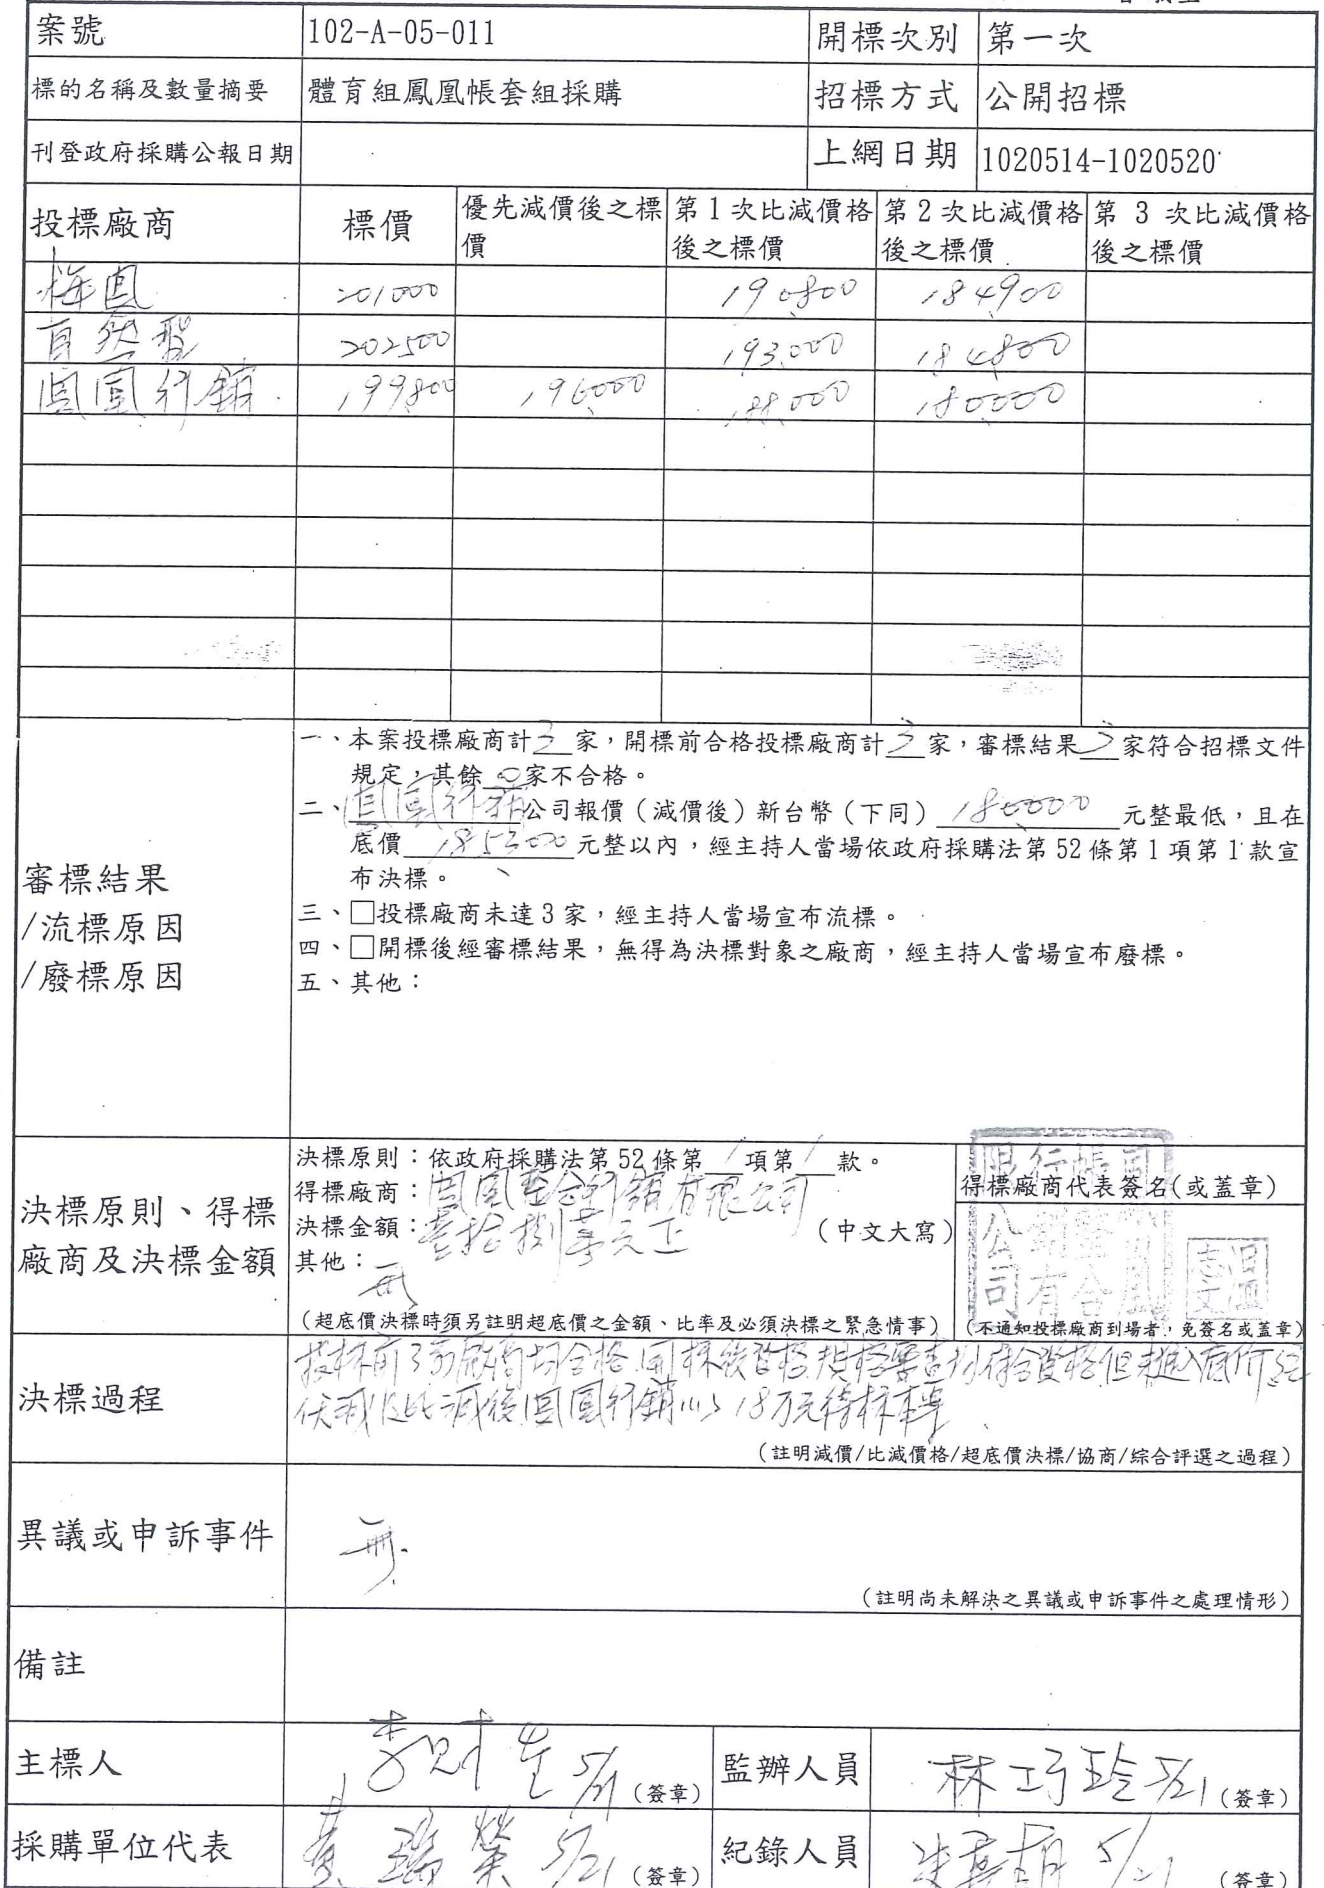 案號 102-A-05-011 開標次別 第一次
標的名稱及數量摘要 體育組鳳凰帳套組採購 招標方式 公開招標
刊登政府採購公報日期 上網日期 1020514-1020520
投標廠商 標價 優先減價後之標價 第1次比減價格後之標價 第2次比減價格後之標價 第3次比減價格後之標價
201000 190800 184900
自然 202500 193,000 184800
鳳凰行銷 199800 196000 188,000 180000
審標結果
/流標原因
/廢標原因
一、本案投標廠商計3家，開標前合格投標廠商計3家，審標結果3家符合招標文件
規定，其餘0家不合格。
二、鳳凰行銷公司報價（減價後）新台幣（下同）180000元整最低，且在
底價185300元整以內，經主持人當場依政府採購法第52條第1項第1款宣
布決標。
三、□投標廠商未達3家，經主持人當場宣布流標。
四、□開標後經審標結果，無得為決標對象之廠商，經主持人當場宣布廢標。
五、其他：
決標原則、得標
廠商及決標金額
決標原則：依政府採購法第52條第1項第1款。
得標廠商：鳳凰整合行銷有限公司
決標金額：壹拾捌萬元正（中文大寫）
其他：無
（超底價決標時須另註明超底價之金額、比率及必須決標之緊急情事）
得標廠商代表簽名(或蓋章)
（不通知投標廠商到場者，免簽名或蓋章）
決標過程
投標前3家廠商均合格，開標後資格規格審查均符合資格但未進入底價經
優減及比減後鳳凰行銷以18萬元得標本案
（註明減價/比減價格/超底價決標/協商/綜合評選之過程）
異議或申訴事件 無.
（註明尚未解決之異議或申訴事件之處理情形）
備註
主標人 李財 5/21 (簽章) 監辦人員 林巧玲 5/21 (簽章)
採購單位代表 黃瑞榮 5/21 (簽章) 紀錄人員 5/21 (簽章)